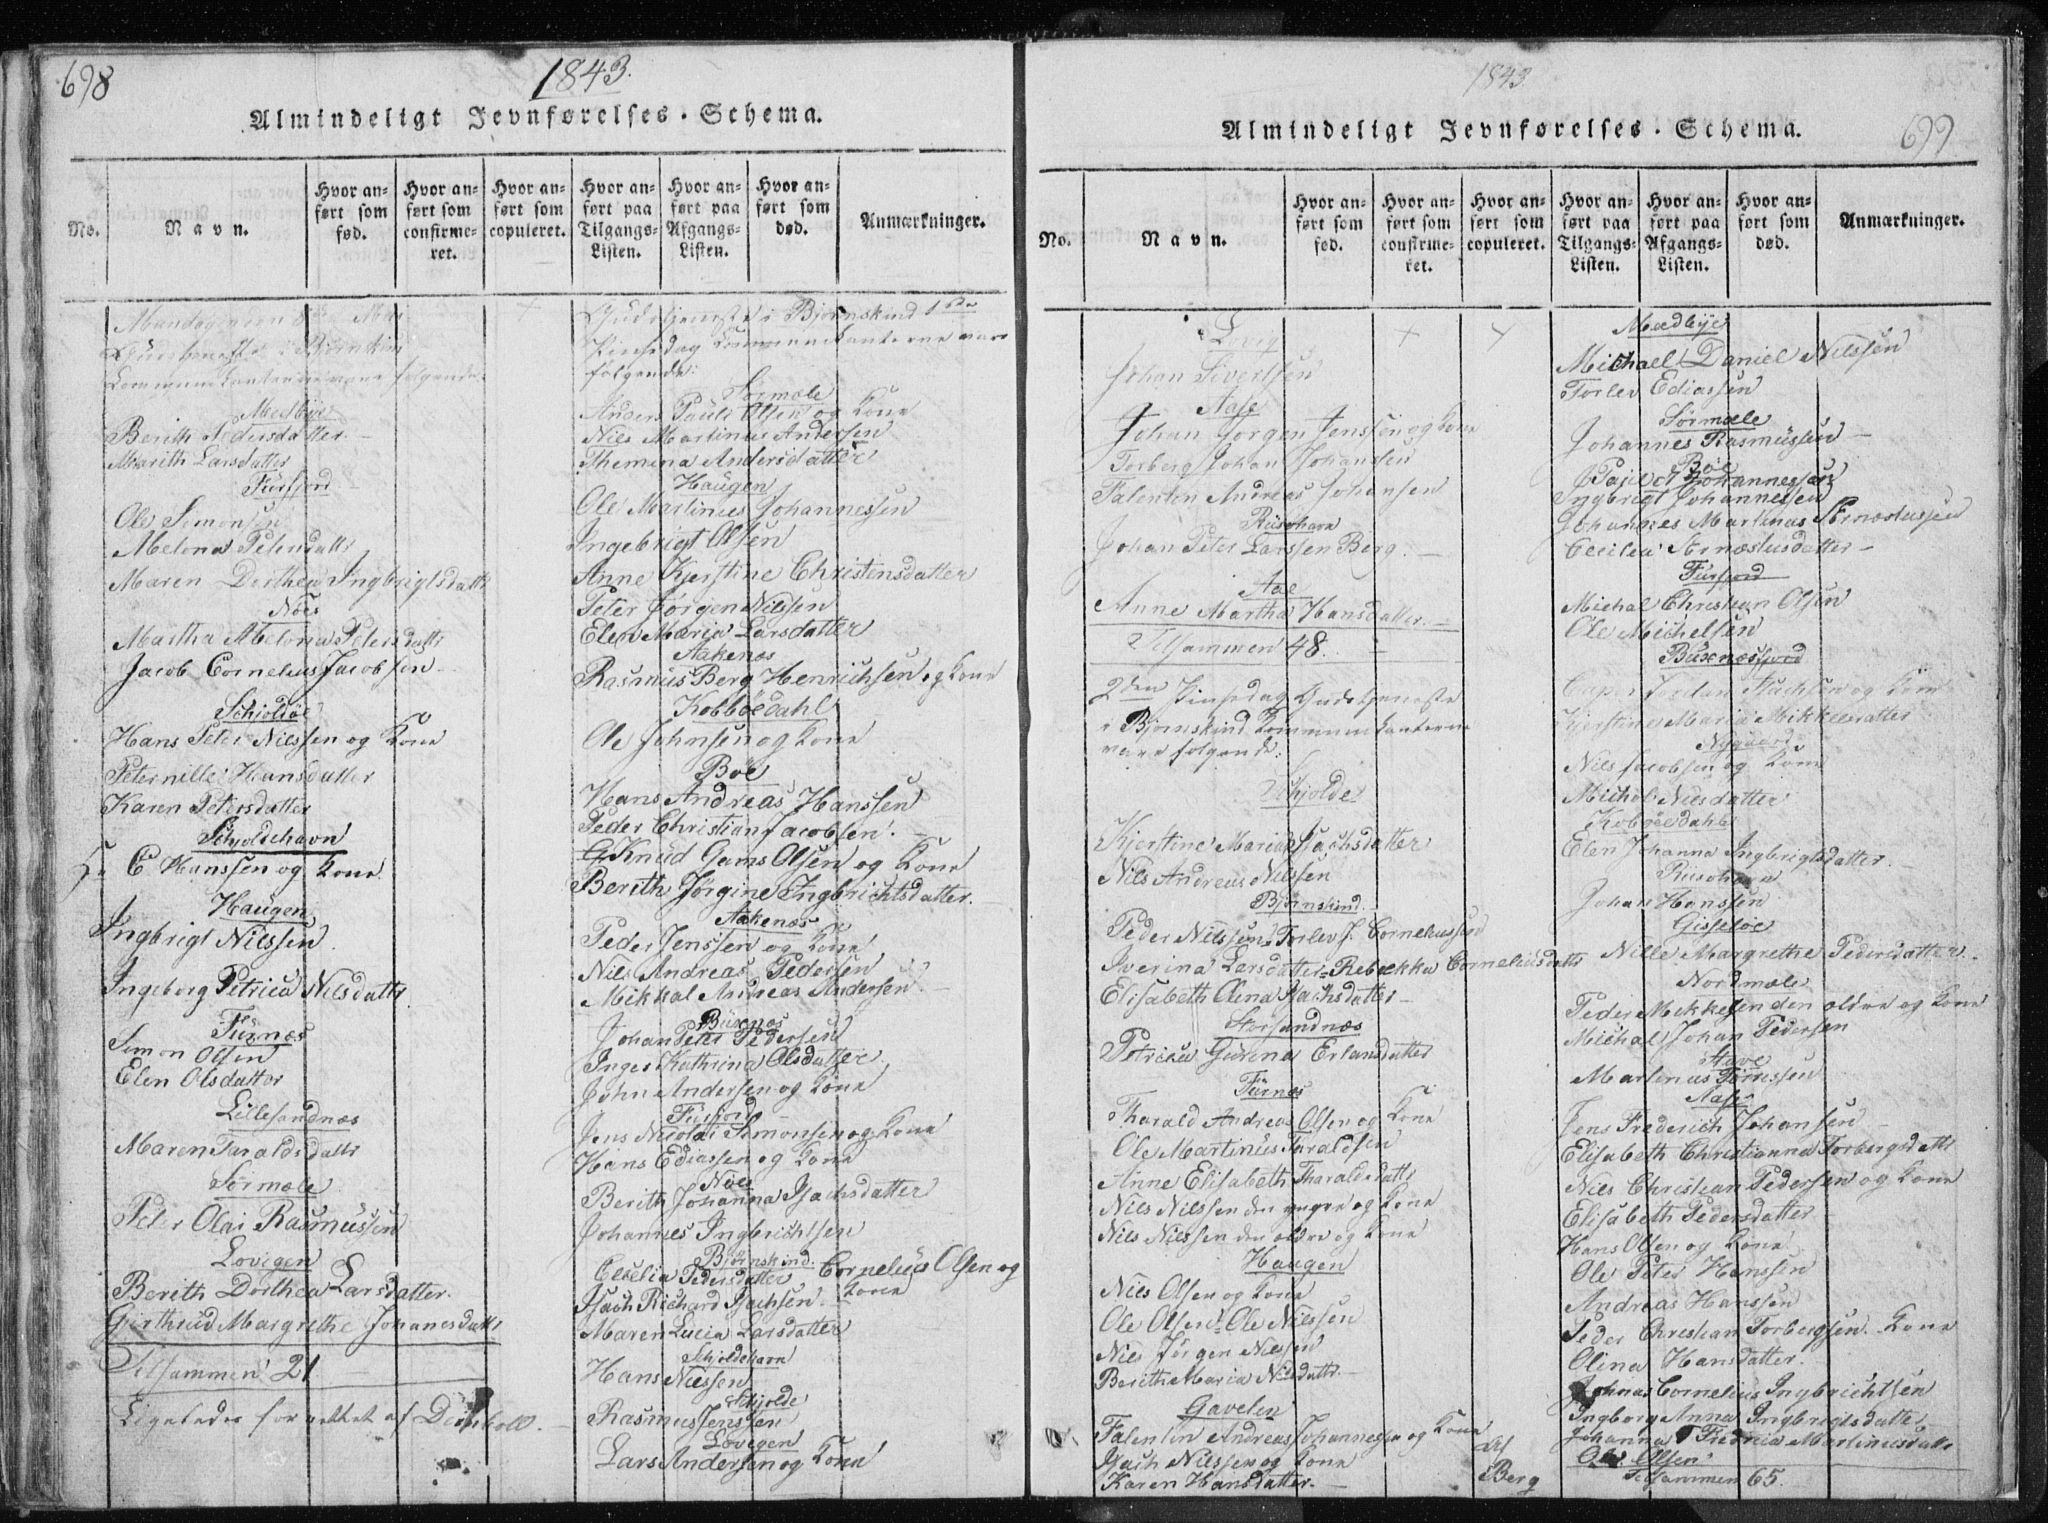 698
1843.
Almindeligt Jevnførelses-Schema.
No.
Navn.
Hvor anført som fød.
Hvor anført som confirmeret.
Hvor anført som copuleret.
Hvor anført paa Tilgangs-Listen.
Hvor anført paa Afgangs-Listen.
Hvor anført som død.
Anmærkninger.
Mandagen den 8de Mai
Gudstjeneste i Bjørnskin
Communicanterne vare følgende:
Medbye
Berith Pedersdatter
Marith Larsdatter
Furfjord
Ole Simonsen
Melona Petersdattr
Maren Dorthea Ingbrigtsdattr
Noes
Martha Melona Petersdattr
Jacob Cornelius Jacobsen
Schjoldøe
Hans Peter Nilssen og Kone
Peternille Hansdatter
Karen Petersdatter
Schjoldehavn
Hr C Hanssen og Kone.
Haugen
Ingbrigt Nilssen.
Ingeborg Petrica Nilsdattr
Furnæs
Simon Olsen
Elen Olsdatter
Lillesandnæs
Maren Taraldsdattr
Sørmæle
Peter Olai Rasmussen
Lovigen
Berith Dorthea Larsdatter.
Gjertheud Margrethe Johanesdattr
Tilsammen 21
Ligeledes forrettet af Deinboll.
Gudstjeneste i Bjørnskind 1ste
Pintsedag Communicanterne vare
følgende:
Sørmæle
Anders Pauli Olsen og Kone
Nils Martinus Andersen
Themina Andersdatter
Haugen
Ole Martinus Johannessen
Ingebrigt Olsen
Anne Kjerstine Christensdatter
Peter Jørgen Nilssen
Elen Maria Larsdatter
Aakenæs
Rasmus Berg Henrichsen og Kone
Kobbøedahl
Ole Johnsen og Kone
Bøe
Hans Andreas Hanssen
Peder Christian Jacobsen.
G Knud Gams Olsen og Kone
Berith Jørgine Ingbrichtsdatter.
Aakenæs
Peder Jenssen og Kone
Nils Andreas Pedersen
Mikkal Andreas Andersen
Buxnæs
Johan Peter Pedersen
Inger Kathrina Olsdatter
John Andersen og Kone
Furfjord
Jens Nicolai Simonsen og Kone
Hans Ediassen og Kone
Noes
Berith Johanna Isachsdatter
Johannes Ingbrichtsen
Bjørnskind.
Cecelia Pedersdatter Cornelius Olsen og
Isach Richard Isachsen. Kone
Maren Lucia Larsdatter
Schjoldehavn
Hans Nilssen
Schjolde
Rasmus Jenssen
Lovigen
Lars Andersen og Kone
1843
699
Almindeligt Jevnførelses-Schema.
No.
Navn.
Hvor anført som fød.
Hvor anført som confirmeret.
Hvor anført som copuleret.
Hvor anført paa Tilgangs-Listen.
Hvor anført paa Afgangs-Listen.
Hvor anført som død.
Anmærkninger.
Lovig
Johan Sivertsen
Aase
Johan Jørgen Jenssen og Kone
Torberg Johan Johansen
Falentin Andreas Johansen
Risøhavn
Johan Peter Larssen Berg.
Aae
Anne Martha Hansdatter
Tilsammen 48.
2den Pintsedag Gudstjeneste
i Bjørnskind Kommunikanterne
vare følgende:
Schjolde
Kjerstine Maria Isachsdatter
Nils Andreas Nilssen
Bjørnskind.
Peder Nilssen. Torlev J. Corneliussen
Iverina Larsdatter. Rebækka Corneliusdattr
Elisabeth Olena Isachsdatter
Storsandnæs
Petrica Gurina Erlandsdatter
Furnæs
Tharald Andreas Olsen og Kone
Ole Martinus Taraldsen
Anne Elisabeth Tharaldsdattr
Nils Nilssen den yngre og Kone
Nils Nilssen den ældre og Kone
Haugen
Nils Olsen og Kone
Ole Olsen. Ole Nilssen
Nils Jørgen Nilssen
Berith Maria Nilsdattr.
Gavelen
Falentin Andreas Johannessen og Kone
Isach Nilssen og Kone
Karen Hansdatter.
Berg
Medbye
Michael Daniel Nilssen
Torlev Ediassen
Sørmæle
Johannes Rasmussen
Bøe
Ingbrigt Johannessen
Johannes Martinus Arnæstussen
Cecilia Arnæstusdatter
Furfjord
Michal Christian Olsen
Ole Michelsen
Buxnæsfjord
Kjerstine Maria Mikkelsdatter
Nygaard
Nils Jacobsen og Kone
Michol Nilsdatter
Kobøedahl
Elen Johanna Ingbrigtsdatter.
Risøhavn
Johan Hanssen
Gisseløe
Nille Margrethe Pedersdatter.
Nordmæle
Peder Mekkelsen den ældre og Kone
Michal Johan Pedersen
Stave
Martinus Tørressen
Aase
Jens Frederich Johansen
Elisabeth Christianna Torbergsdattr
Nils Christian Pedersen og Kone
Elisabeth Pedersdatter
Hans Olsen og Kone
Ole Peter Hanssen
Andreas Hanssen
Peder Christian Torbergsen. Kone
Olina Hansdatter.
Johnas Cornelius Ingbrichtsen
Ingborg Anna Ingbrigtsdatter
Johanna Fredrica Martinusdattr
Ole Olsen
Tilsammen 65.